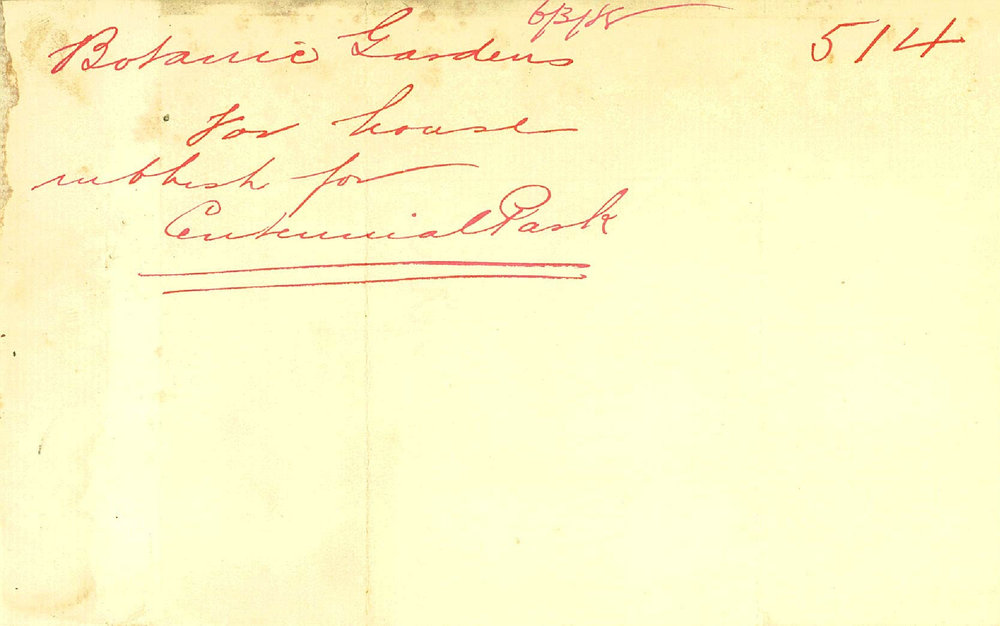 6/3/88
Botanic Gardens 514
For house
rubbish for
Centennial Park